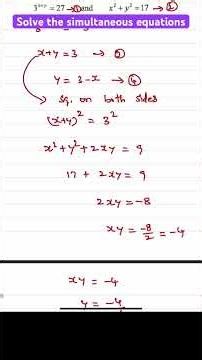 3ˣ⁺ʸ = 27 → ① and x² + y² = 17 → ②
Solve the simultaneous equations
x+y = 3 → ③
y = 3-x → ④
Sq. on both sides
(x+y)² = 3²
x² + y² + 2xy = 9
17 + 2xy = 9
2xy = -8
xy = -8/2 = -4
xy = -4
y = -4